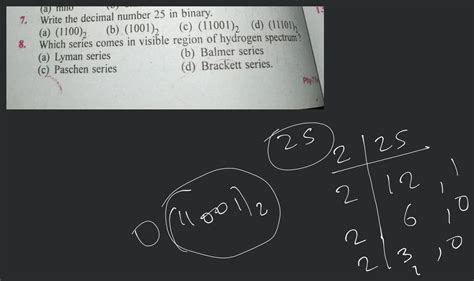 (a) mho
7. Write the decimal number 25 in binary.
(a) (1100)₂ (b) (1001)₂ (c) (11001)₂ (d) (11101)₂
8. Which series comes in visible region of hydrogen spectrum?
(a) Lyman series (b) Balmer series
(c) Paschen series (d) Brackett series.
25
2 | 25
2 | 12, 1
2 6, 0
2 | 3, 0
(11001)₂